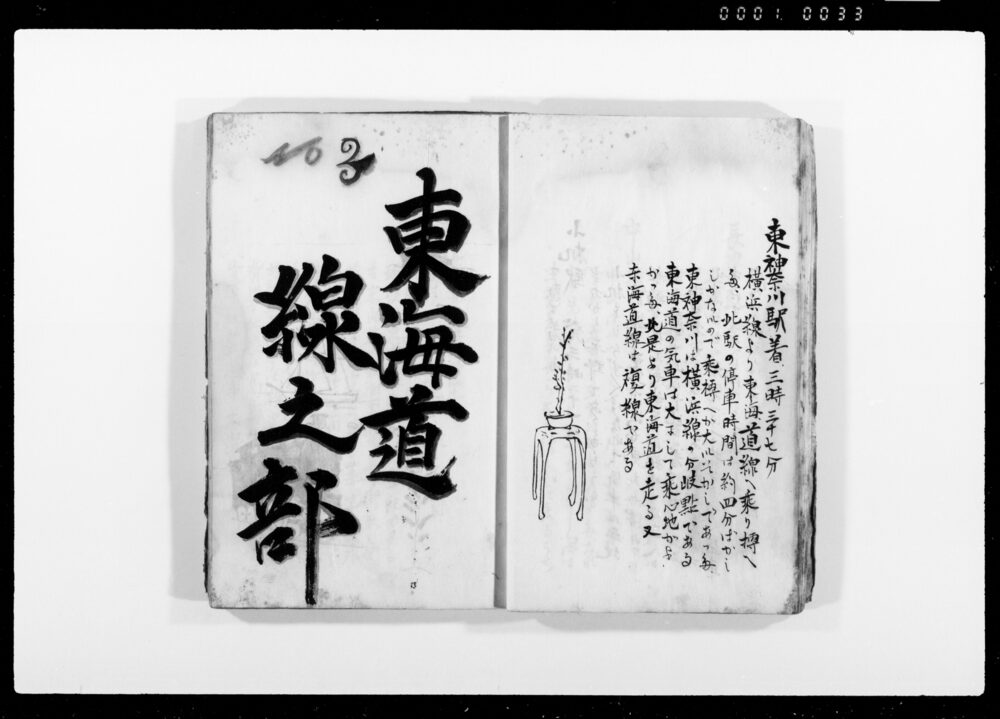 0001 0033
東神奈川駅着三時三十七分
横浜線より東海道線へ乗り搏へ
た、此駅の停車時間は約四分ばかし
しかないので乗搏へが大いそがしであつた、
東神奈川は横浜線の分岐點である
東海道の気車は大きして乗心地がよ
かつた、此是より東海道を走る又
東海道線は複線である
No 3
東海道
線之部